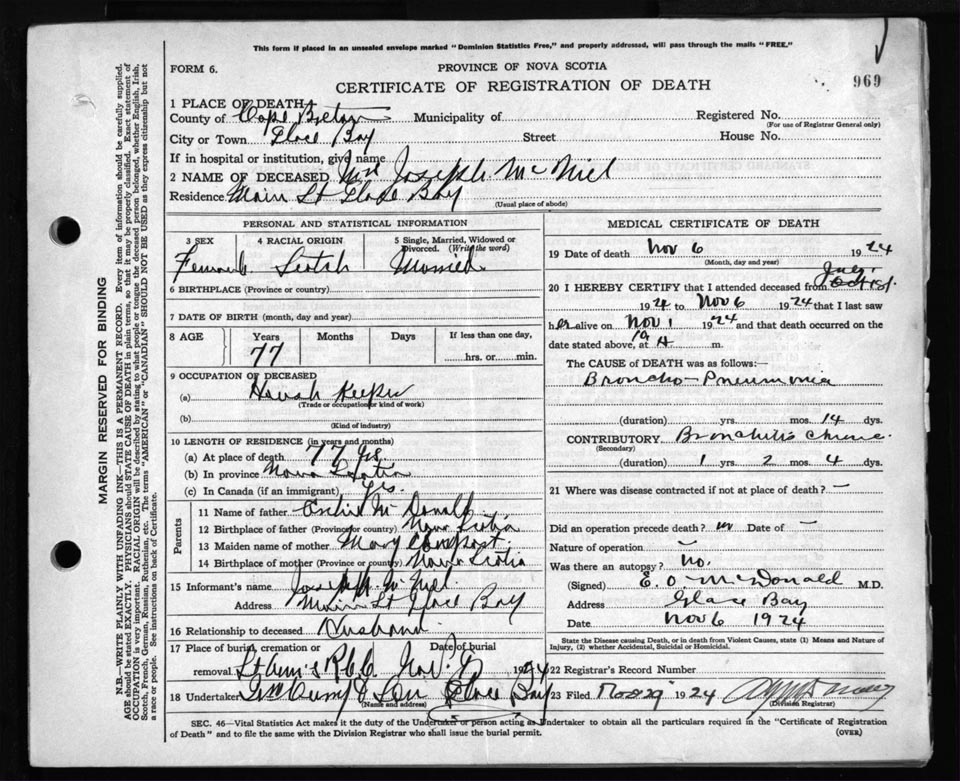 This form if placed in an unsealed envelope marked "Dominion Statistics Free," and properly addressed, will pass through the mails "FREE."
FORM 6.
PROVINCE OF NOVA SCOTIA
CERTIFICATE OF REGISTRATION OF DEATH
969
1 PLACE OF DEATH
County of Cape Breton Municipality of Registered No.
(For use of Registrar General only)
City or Town Glace Bay Street House No.
If in hospital or institution, give name
2 NAME OF DECEASED Mrs Joseph McNiel
Residence Main St Glace Bay
(Usual place of abode)
PERSONAL AND STATISTICAL INFORMATION
3 SEX 4 RACIAL ORIGIN 5 Single, Married, Widowed or Divorced. (Write the word)
Female Scotch Married
6 BIRTHPLACE (Province or country)
7 DATE OF BIRTH (month, day and year)
8 AGE Years Months Days If less than one day,
77 hrs. or min.
9 OCCUPATION OF DECEASED
(a) Housh Keeper
(Trade or occupation or kind of work)
(b)
(Kind of industry)
10 LENGTH OF RESIDENCE (in years and months)
(a) At place of death 77 yrs
(b) In province Nova Scotia
(c) In Canada (if an immigrant) Yes.
Parents
11 Name of father Archie McDonald
12 Birthplace of father (Province or country) Nova Scotia
13 Maiden name of mother Mary
14 Birthplace of mother (Province or country) Nova Scotia
15 Informant's name Joseph McNiel.
Address Main St Glace Bay
16 Relationship to deceased Husband
17 Place of burial, cremation or Date of burial
removal St Ann's R.C.C. Nov. 1924
18 Undertaker McCurry & Son Glace Bay
(Name and address)
MEDICAL CERTIFICATE OF DEATH
19 Date of death Nov 6 1924
(Month, day and year)
20 I HEREBY CERTIFY that I attended deceased from Oct 1st.
1924 to Nov 6 1924 that I last saw
her alive on Nov 1 1924 and that death occurred on the
date stated above, at m.
The CAUSE OF DEATH was as follows:
Broncho-Pneumonia
(duration) yrs. mos. 14 dys.
CONTRIBUTORY Bronchitis Chronic
(Secondary)
(duration) 1 yrs. 2 mos. 4 dys.
21 Where was disease contracted if not at place of death? —
Did an operation precede death? no Date of —
Nature of operation —
Was there an autopsy? no.
(Signed) E. O. McDonald M.D.
Address Glace Bay
Date Nov 6 1924
State the Disease causing Death, or in death from Violent Causes, state (1) Means and Nature of Injury, (2) whether Accidental, Suicidal or Homicidal.
22 Registrar's Record Number
23 Filed 1924
(Division Registrar)
SEC. 46—Vital Statistics Act makes it the duty of the Undertaker or person acting as Undertaker to obtain all the particulars required in the "Certificate of Registration
of Death" and to file the same with the Division Registrar who shall issue the burial permit.
(OVER)
MARGIN RESERVED FOR BINDING
N.B.—WRITE PLAINLY WITH UNFADING INK—THIS IS A PERMANENT RECORD. Every item of information should be carefully supplied.
AGE should be stated EXACTLY. PHYSICIANS should STATE CAUSE OF DEATH in plain terms, so that it may be properly classified. Exact statement of
OCCUPATION is very important. RACIAL ORIGIN will be described by stating to what people or tongue the deceased person belonged, whether English, Irish,
Scotch, French, German, Russian, Ruthenian, etc. The terms "AMERICAN" or "CANADIAN" SHOULD NOT BE USED as they express citizenship but not
a race or people. See instructions on back of Certificate.